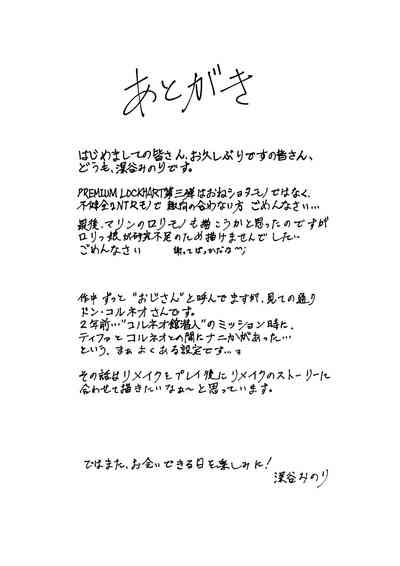 あとがき
はじめましての皆さん、お久しぶりですの皆さん、
どうも、深谷みのりです。
PREMIUM LOCKHART第三弾はおねショタモノではなく、
不健全なNTRモノで 趣向の合わない方 ごめんなさい…
最後、マリンのロリモノも描こうかと思ったのですが
ロリっ娘が研究不足のため描けませんでした…
ごめんなさい
作中 ずっと "おじさん" と呼んでますが、見ての通り
ドン・コルネオさんです。
2年前…"コルネオ館潜入"のミッション時に、
ティファとコルネオとの間にナニかがあった…
という、まぁ よくある設定です…
その話はリメイクをプレイ後に リメイクのストーリーに
合わせて描きたいなぁ〜と思っています。
ではまた、お会いできる日を楽しみに!
深谷みのり